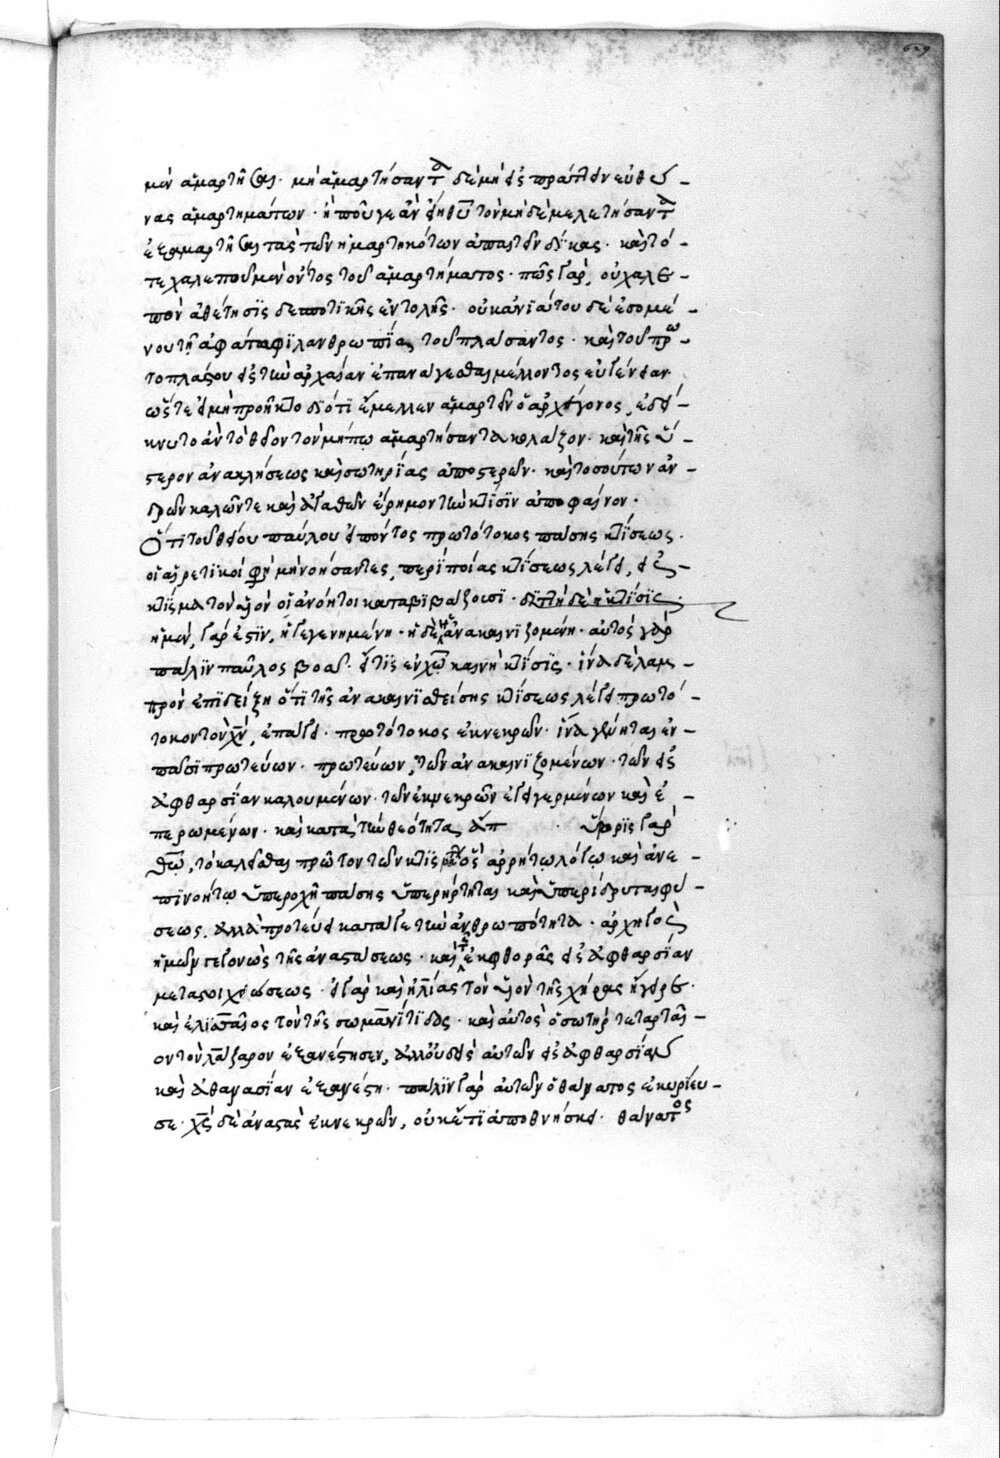 629
μὲν ἁμαρτῆσαι· μὴ ἁμαρτήσαντα δὲ μὴ εἰσπράττειν εὐθύ-
νας ἁμαρτημάτων· ἤπου γε ἂν ἐπὶ θεοῦ τὸν μὴ δὲ μελετήσαντα
ἐξαμαρτῆσαι τὰς τῶν ἡμαρτηκότων ἀπαιτεῖν δίκας· καὶ τό-
τε χαλεποῦ μὲν ὄντος τοῦ ἁμαρτήματος· πῶς γὰρ, οὐ χαλε-
πὸν ἀθέτησις δεσποτικῆς ἐντολῆς· οὐκ ἀνιάτου δὲ ἐσομέ-
νου τῇ ἀφάτῳ φιλανθρωπίᾳ τοῦ πλάσαντος· καὶ τοῦ πρω
τοπλάστου εἰς τὴν ἀρχαίαν ἐπανάγεσθαι μέλλοντος εὐγένειαν
ὥστε εἰ μὴ προῆκτο διότι ἔμελλεν ἁμαρτεῖν ὁ ἀρχέγονος, ἐδεί-
κνυτο ἂν τὸ θεῖον τὸν μήπω ἁμαρτήσαντα κολάζον· καὶ τῆς ὑ-
στερον ἀνακλήσεως καὶ σωτηρίας ἀποστεροῦν· καὶ τοσούτων ἀν-
δρῶν καλῶν τε καὶ ἀγαθῶν ἔρημον τὴν κτίσιν ἀποφαῖνον·
Ὅτι τοῦ θείου παύλου εἰπόντος πρωτότοκος πάσης κτίσεως·
οἱ αἱρετικοὶ μὴ νοήσαντες, περὶ ποίας κτίσεως λέγει, εἰς-
κτίσμα τὸν υἱὸν οἱ ἀνόητοι καταβιβάζουσι· διττὴ δὲ ἡ κτίσις·
ἡ μὲν, γάρ ἐστιν, ἡ γεγενημένη· ἡ δὲ ἡ ἀνακαινιζομένη· αὐτὸς γὰρ
πάλιν παῦλος βοᾷ· εἴ τις ἐν χῶ καινὴ κτίσις· ἵνα δὲ λαμ-
πρὸν ἐπιδείξῃ ὅτι τῆς ἀνακαινισθείσης κτίσεως λέγει πρωτό-
τοκον τὸν χν, ἐπάγει· πρωτότοκος ἐκ νεκρῶν· ἵνα γένηται ἐν-
πᾶσι πρωτεύων· πρωτεύων, τῶν ἀνακαινιζομένων· τῶν εἰς
ἀφθαρσίαν καλουμένων· τῶν ἐκ νεκρῶν ἐγειγερμένων καὶ ἐ-
περωμένων· καὶ κατὰ τὴν θεότητα, ἀπ ὕβρις γὰρ
θῶ, τὸ καλεῖσθαι πρῶτον τῶν κτισμάτων ὃς ἀρρήτῳ λόγῳ καὶ ἀνε-
πινοήτῳ ὑπεροχῇ πάσης ὑπερήρτηται καὶ ὑπερίδρυται φύ-
σεως. ἀλλὰ πρωτεύει κατά γε τὴν ἀνθρωπότητα· ἀρχηγὸς
ἡμῶν γεγονὼς τῆς ἀναστάσεως· καὶ τῆς ἐκ φθορᾶς εἰς ἀφθαρσίαν
μεταστοιχειώσεως· εἰ γὰρ καὶ ἠλίας τὸν υἱὸν τῆς χήρας ἤγειρε·
καὶ ἐλισσαῖος τὸν τῆς σωμανίτιδος· καὶ αὐτὸς ὁ σωτὴρ τεταρταῖ-
ον τὸν λάζαρον ἐξανέστησεν, ἀλλ' οὐδεὶς αὐτῶν εἰς ἀφθαρσίαν
καὶ ἀθανασίαν ἐξανέστη· πάλιν γὰρ αὐτῶν ὁ θάνατος ἐκυρίευ-
σε· χς δὲ ἀναστὰς ἐκ νεκρῶν, οὐκέτι ἀποθνήσκει· θάνατος